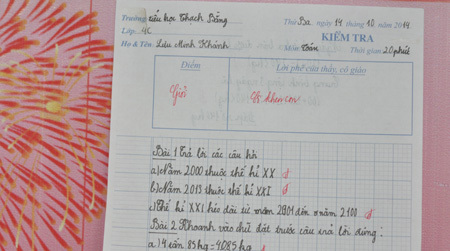 Trường: tiểu học Thạch Bằng Thứ Ba ngày 14 tháng 10 năm 2014
Lớp: 4C KIỂM TRA
Họ & Tên: Lưu Minh Khánh Môn: Toán Thời gian 20 phút
Điểm Lời phê của thầy, cô giáo
Giỏi Cô khen con
Bài 1 Trả lời các câu hỏi
a) Năm 2000 thuộc thế kỉ XX đ
b) Năm 2013 thuộc thế kỉ XXI đ
c) Thế kỉ XXI kéo dài từ năm 2001 đến năm 2100 đ
Bài 2. Khoanh vào chữ đặt trước câu trả lời đúng:
a) 4 tấn 85 kg = 4085 kg